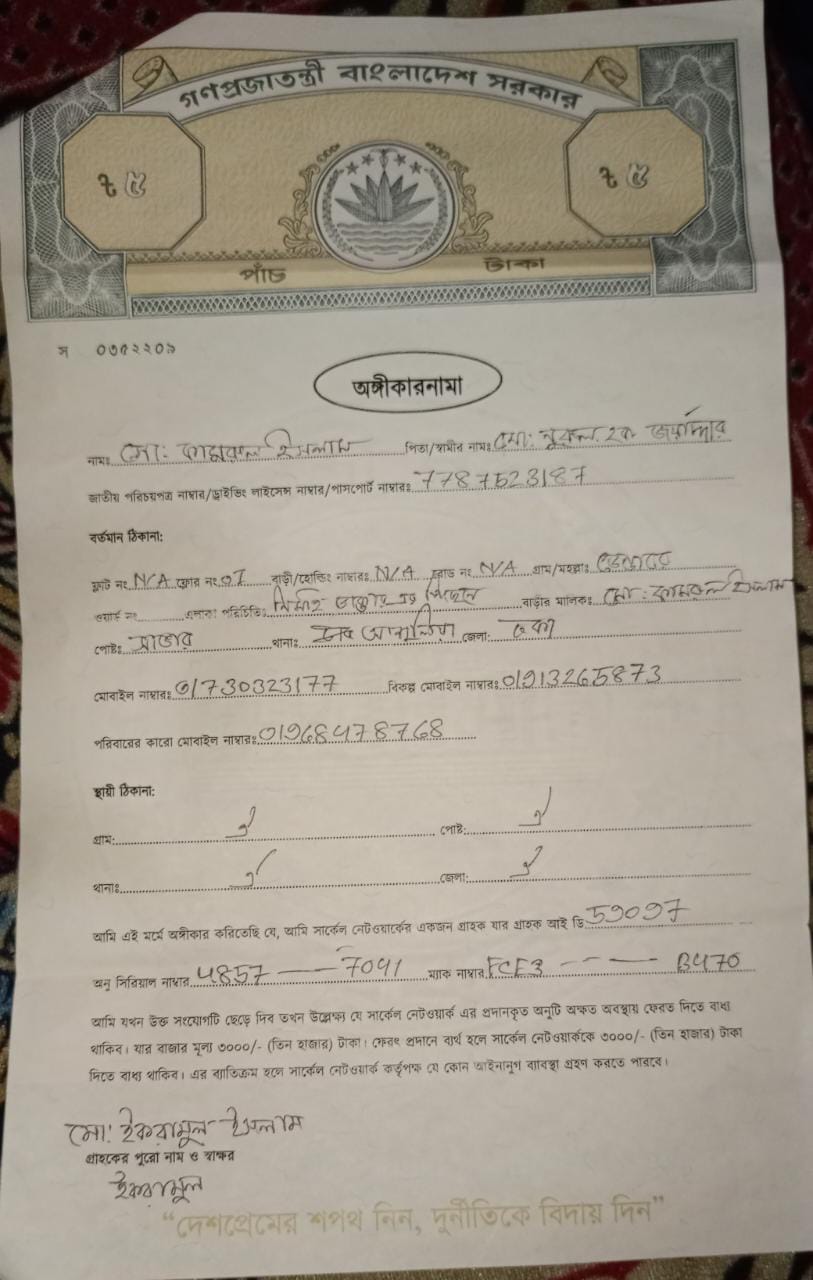 গণপ্রজাতন্ত্রী বাংলাদেশ সরকার
ট ৫ ট ৫
পাঁচ টাকা
স ০৩৫২২০৯
অঙ্গীকারনামা
নামঃ মো: কামরুল ইসলাম পিতা/স্বামীর নামঃ মো: নুরুল হক
জাতীয় পরিচয়পত্র নাম্বার/ড্রাইভিং লাইসেন্স নাম্বার/পাসপোর্ট নাম্বারঃ 7787523187
বর্তমান ঠিকানা:
ফ্লাট নং N/A ফ্লোর নং 01 বাড়ী/হোল্ডিং নাম্বারঃ N/A রোড নং N/A গ্রাম/মহল্লাঃ
ওয়ার্ড নং এলাকা পরিচিতিঃ ডাক্তার এর পিছনে বাড়ীর মালিকঃ মো: কামরুল ইসলাম
পোষ্টঃ সাভার থানাঃ আশুলিয়া জেলা: ঢাকা
মোবাইল নাম্বারঃ 01730323177 বিকল্প মোবাইল নাম্বারঃ 01913265873
পরিবারের কারো মোবাইল নাম্বারঃ 01968478768
স্থায়ী ঠিকানা:
গ্রাম: পোষ্ট:
থানাঃ জেলা:
আমি এই মর্মে অঙ্গীকার করিতেছি যে, আমি সার্কেল নেটওয়ার্কের একজন গ্রাহক যার গ্রাহক আই ডি 59097
অনু সিরিয়াল নাম্বার 4857 — 7041 ম্যাক নাম্বার FCF3 - - — B470
আমি যখন উক্ত সংযোগটি ছেড়ে দিব তখন উল্লেক্ষ্য যে সার্কেল নেটওয়ার্ক এর প্রদানকৃত অনুটি অক্ষত অবস্থায় ফেরত দিতে বাধ্য
থাকিব। যার বাজার মূল্য ৩০০০/- (তিন হাজার) টাকা। ফেরৎ প্রদানে ব্যর্থ হলে সার্কেল নেটওয়ার্ককে ৩০০০/- (তিন হাজার) টাকা
দিতে বাধ্য থাকিব। এর ব্যতিক্রম হলে সার্কেল নেটওয়ার্ক কর্তৃপক্ষ যে কোন আইনানুগ ব্যবস্থা গ্রহণ করতে পারবে।
মো: ইকরামুল ইসলাম
গ্রাহকের পুরো নাম ও স্বাক্ষর
ইকরামুল
“দেশপ্রেমের শপথ নিন, দুর্নীতিকে বিদায় দিন”